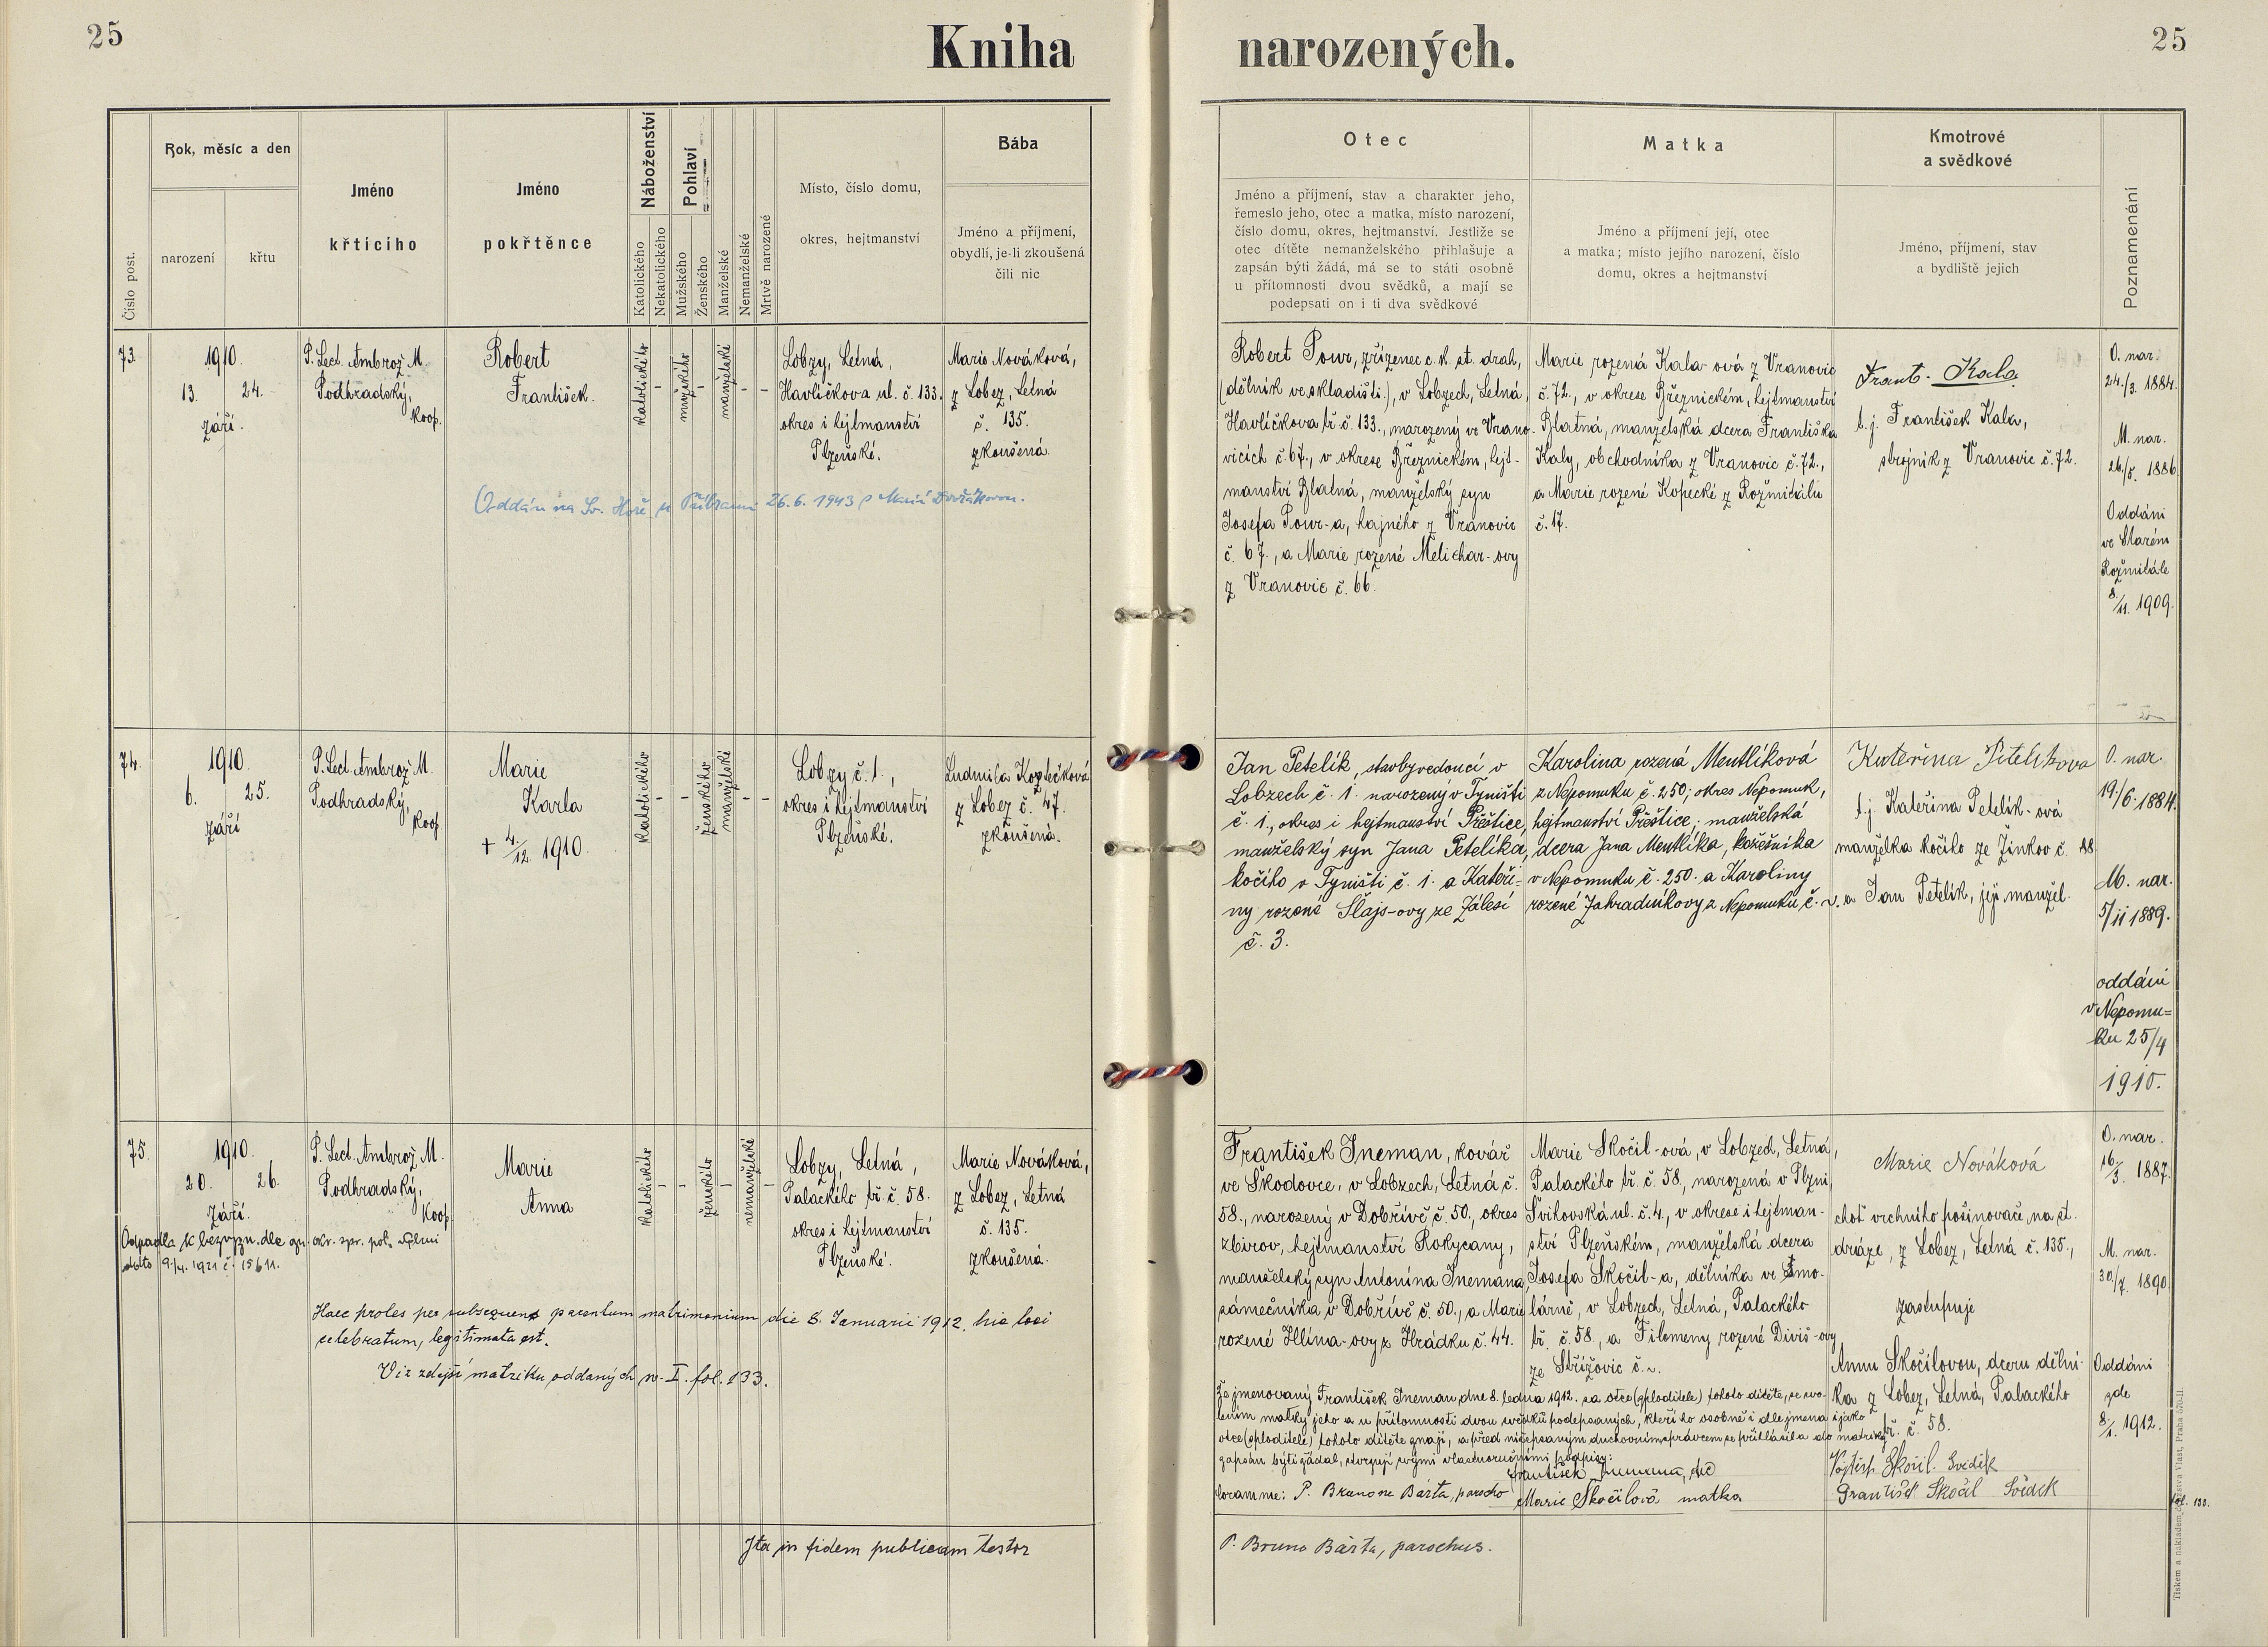 25
Kniha narozených.
25
Číslo post.
Rok, měsíc a den
narození
křtu
Jméno
křtícího
Jméno
pokřtěnce
Náboženství
Katolického
Nekatolického
Pohlaví
Mužského
Ženského
Manželské
Nemanželské
Mrtvě narozené
Místo, číslo domu,
okres, hejtmanství
Bába
Jméno a příjmení,
obydlí, je-li zkoušená
čili nic
Otec
Jméno a příjmení, stav a charakter jeho,
řemeslo jeho, otec a matka, místo narození,
číslo domu, okres, hejtmanství. Jestliže se
otec dítěte nemanželského přihlašuje a
zapsán býti žádá, má se to státi osobně
u přítomnosti dvou svědků, a mají se
podepsati on i ti dva svědkové
Matka
Jméno a příjmení její, otec
a matka; místo jejího narození, číslo
domu, okres a hejtmanství
Kmotrové
a svědkové
Jméno, příjmení, stav
a bydliště jejich
Poznamenání
73.
1910.
13. 24.
září.
P. Lect. Ambrož M.
Podhradský,
koop.
Robert
František.
katolického
-
mužského
-
manželské
-
-
Lobzy, Letná,
Havlíčkova ul. č. 133.
okres i hejtmanství
Plzeňské.
Marie Nováková,
z Lobez, Letná
č. 135.
zkoušená.
Oddán na Sv. Hoře u Příbrami 26.6.1943 s Marií Dvořákovou.
Robert Pour, zřízenec c. k. st. drah,
(dělník ve skladišti), v Lobzech, Letná,
Havlíčkova tř. č. 133., narozený ve Vrano-
vicích č. 67., v okrese Březnickém, hejt-
manství Blatná, manželský syn
Josefa Pour-a, hajného z Vranovic
č. 67., a Marie rozené Melichar-ovy
z Vranovic č. 66.
Marie rozená Kala-ová z Vranovic
č. 72., v okrese Březnickém, hejtmanství
Blatná, manželská dcera Františka
Kaly, obchodníka z Vranovic č. 72.,
a Marie rozené Kopecké z Rožmitálu
č. 17.
Frant. Kala
t. j. František Kala,
strojník z Vranovic č. 72.
O. nar.
24./3. 1884.
M. nar.
26/5. 1886
Oddáni
ve Starém
Rožmitále
8/11. 1909.
74.
1910.
6. 25.
září
P. Lect. Ambrož M.
Podhradský,
koop.
Marie
Karla
+ 4./12. 1910.
katolického
-
-
ženského
manželské
-
-
Lobzy č. 1.,
okres i hejtmanství
Plzeňské.
Ludmila Kozlečková
z Lobez č. 47.
zkoušená.
Jan Petelík, stavbyvedoucí v
Lobzech č. 1. narozený v Týništi
č. 1., okres i hejtmanství Přeštice,
manželský syn Jana Petelíka,
kočího v Týništi č. 1. a Kateři-
ny rozené Šlajs-ovy ze Zálesí
č. 3.
Karolina rozená Mentlíková
z Nepomuku č. 250; okres Nepomuk,
hejtmanství Přeštice; manželská
dcera Jana Mentlíka, kožešníka
v Nepomuku č. 250. a Karoliny
rozené Zahradníkovy z Nepomuku č. ~.
Kateřina Petelíkova
t. j. Kateřina Petelík-ová
manželka kočího ze Žinkov č. 88
a Jan Petelík, její manžel.
O. nar.
19./6. 1884.
M. nar.
5/11 1889.
oddáni
v Nepomu-
ku 25/4
1910.
75.
1910.
20. 26.
září.
P. Lect. Ambrož M.
Podhradský,
koop.
Marie
Anna
katolického
-
-
ženského
-
nemanželské
-
Lobzy, Letná,
Palackého tř. č. 58.
okres i hejtmanství
Plzeňské.
Marie Nováková,
z Lobez, Letná
č. 135.
zkoušená.
Odpadla k bezvyzn. dle ozn. okr. spr. pol. v Plzni
dto 9./4. 1921 č. 15611.
Haec proles per subsequens parentum matrimonium die 8. Januarii 1912. hic loci
celebratum, legitimata est.
Viz zdejší matriku oddaných w. I. fol. 133.
František Ineman, kovář
ve Škodovce, v Lobzech, Letná č.
58., narozený v Dobřívě č. 50., okres
Zbirov, hejtmanství Rokycany,
manželský syn Antonína Inemana,
zámečníka v Dobřívě č. 50., a Marie
rozené Hlína-ovy z Hrádku č. 44.
Marie Skočil-ová, v Lobzech, Letná,
Palackého tř. č. 58., narozená v Plzni,
Švihovská ul. č. 4., v okrese i hejtman-
ství Plzeňském, manželská dcera
Josefa Skočil-a, dělníka ve Šmo-
lárně, v Lobzech, Letná, Palackého
tř. č. 58., a Filomeny rozené Diviš-ovy
ze Střížovic č. ~.
Marie Nováková
choť vrchního pošinovače na st.
dráze, z Lobez, Letná č. 135.,
zastupuje
Annu Skočilovou, dceru dělní-
ka z Lobez, Letná, Palackého
tř. č. 58.
O. nar.
16./3. 1887.
M. nar.
30/7. 1890.
Oddáni
zde
8./1. 1912.
fol. 133.
Že jmenovaný František Ineman, dne 8. ledna 1912. za otce (zploditele) tohoto dítěte, se svo-
lením matky jeho a u přítomnosti dvou svědků podepsaných, kteří ho osobně i dle jmena i jako
otce (zploditele) tohoto dítěte znají, a před nížepsaným duchovním správcem se přihlásil a do matriky
zapsán býti žádal, stvrzují svými vlastnoručními podpisy:
František Ineman, otec
Coram me: P. Brunone Bárta, parocho
Marie Skočilová matka
Vojtěch Skočil. Svědek
František Skočil Svědek
Ita in fidem publicam testor
P. Bruno Bárta, parochus.